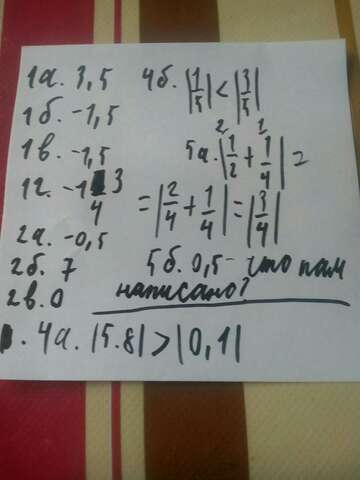 1а. 3,5
1б. -1,5
1в. -1,5
1г. -1 3/4
2а. -0,5
2б. 7
2в. 0
4б. |1/5| < |3/5|
5а. |1/2 + 1/4| =
= |2/4 + 1/4| = |3/4|
5б. 0,5 - что там
написано?
4а. |5.8| > |0,1|